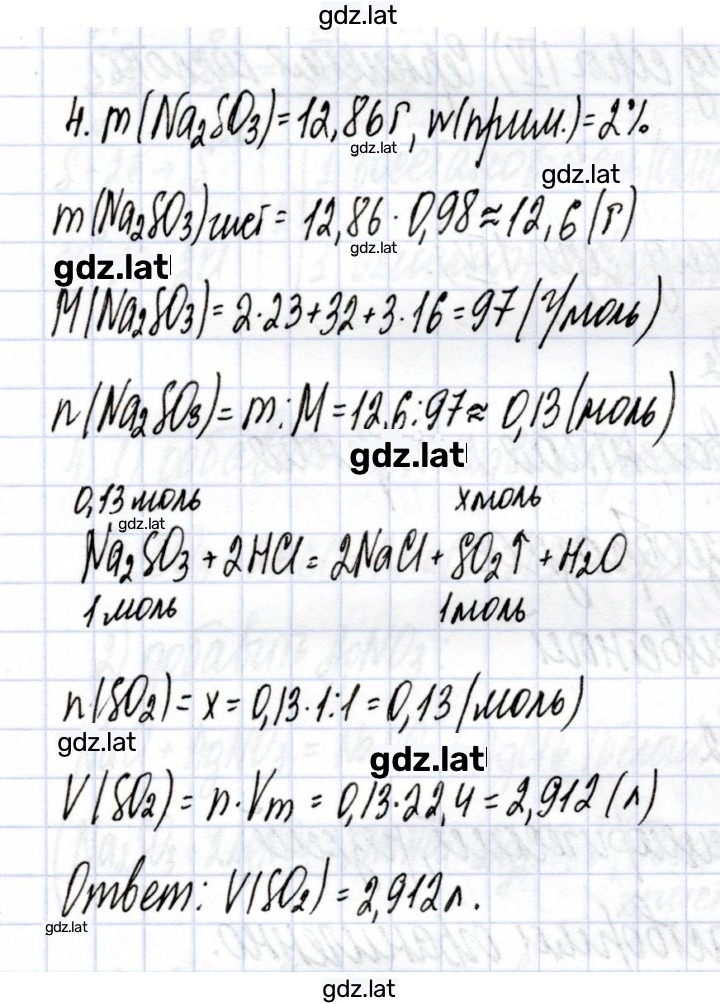 gdz.lat
4. m(Na₂SO₃) = 12,86 г, w(прим.) = 2%
gdz.lat
gdz.lat
m(Na₂SO₃)чист = 12,86 · 0,98 ≈ 12,6 (г)
gdz.lat
gdz.lat
M(Na₂SO₃) = 2·23+32+3·16 = 97 (г/моль)
n(Na₂SO₃) = m:M = 12,6:97 ≈ 0,13 (моль)
gdz.lat
0,13 моль x моль
gdz.lat
Na₂SO₃ + 2HCl = 2NaCl + SO₂↑ + H₂O
1 моль 1 моль
n(SO₂) = x = 0,13·1:1 = 0,13 (моль)
gdz.lat
gdz.lat
V(SO₂) = n·Vm = 0,13·22,4 = 2,912 (л)
Ответ: V(SO₂) = 2,912 л.
gdz.lat
gdz.lat